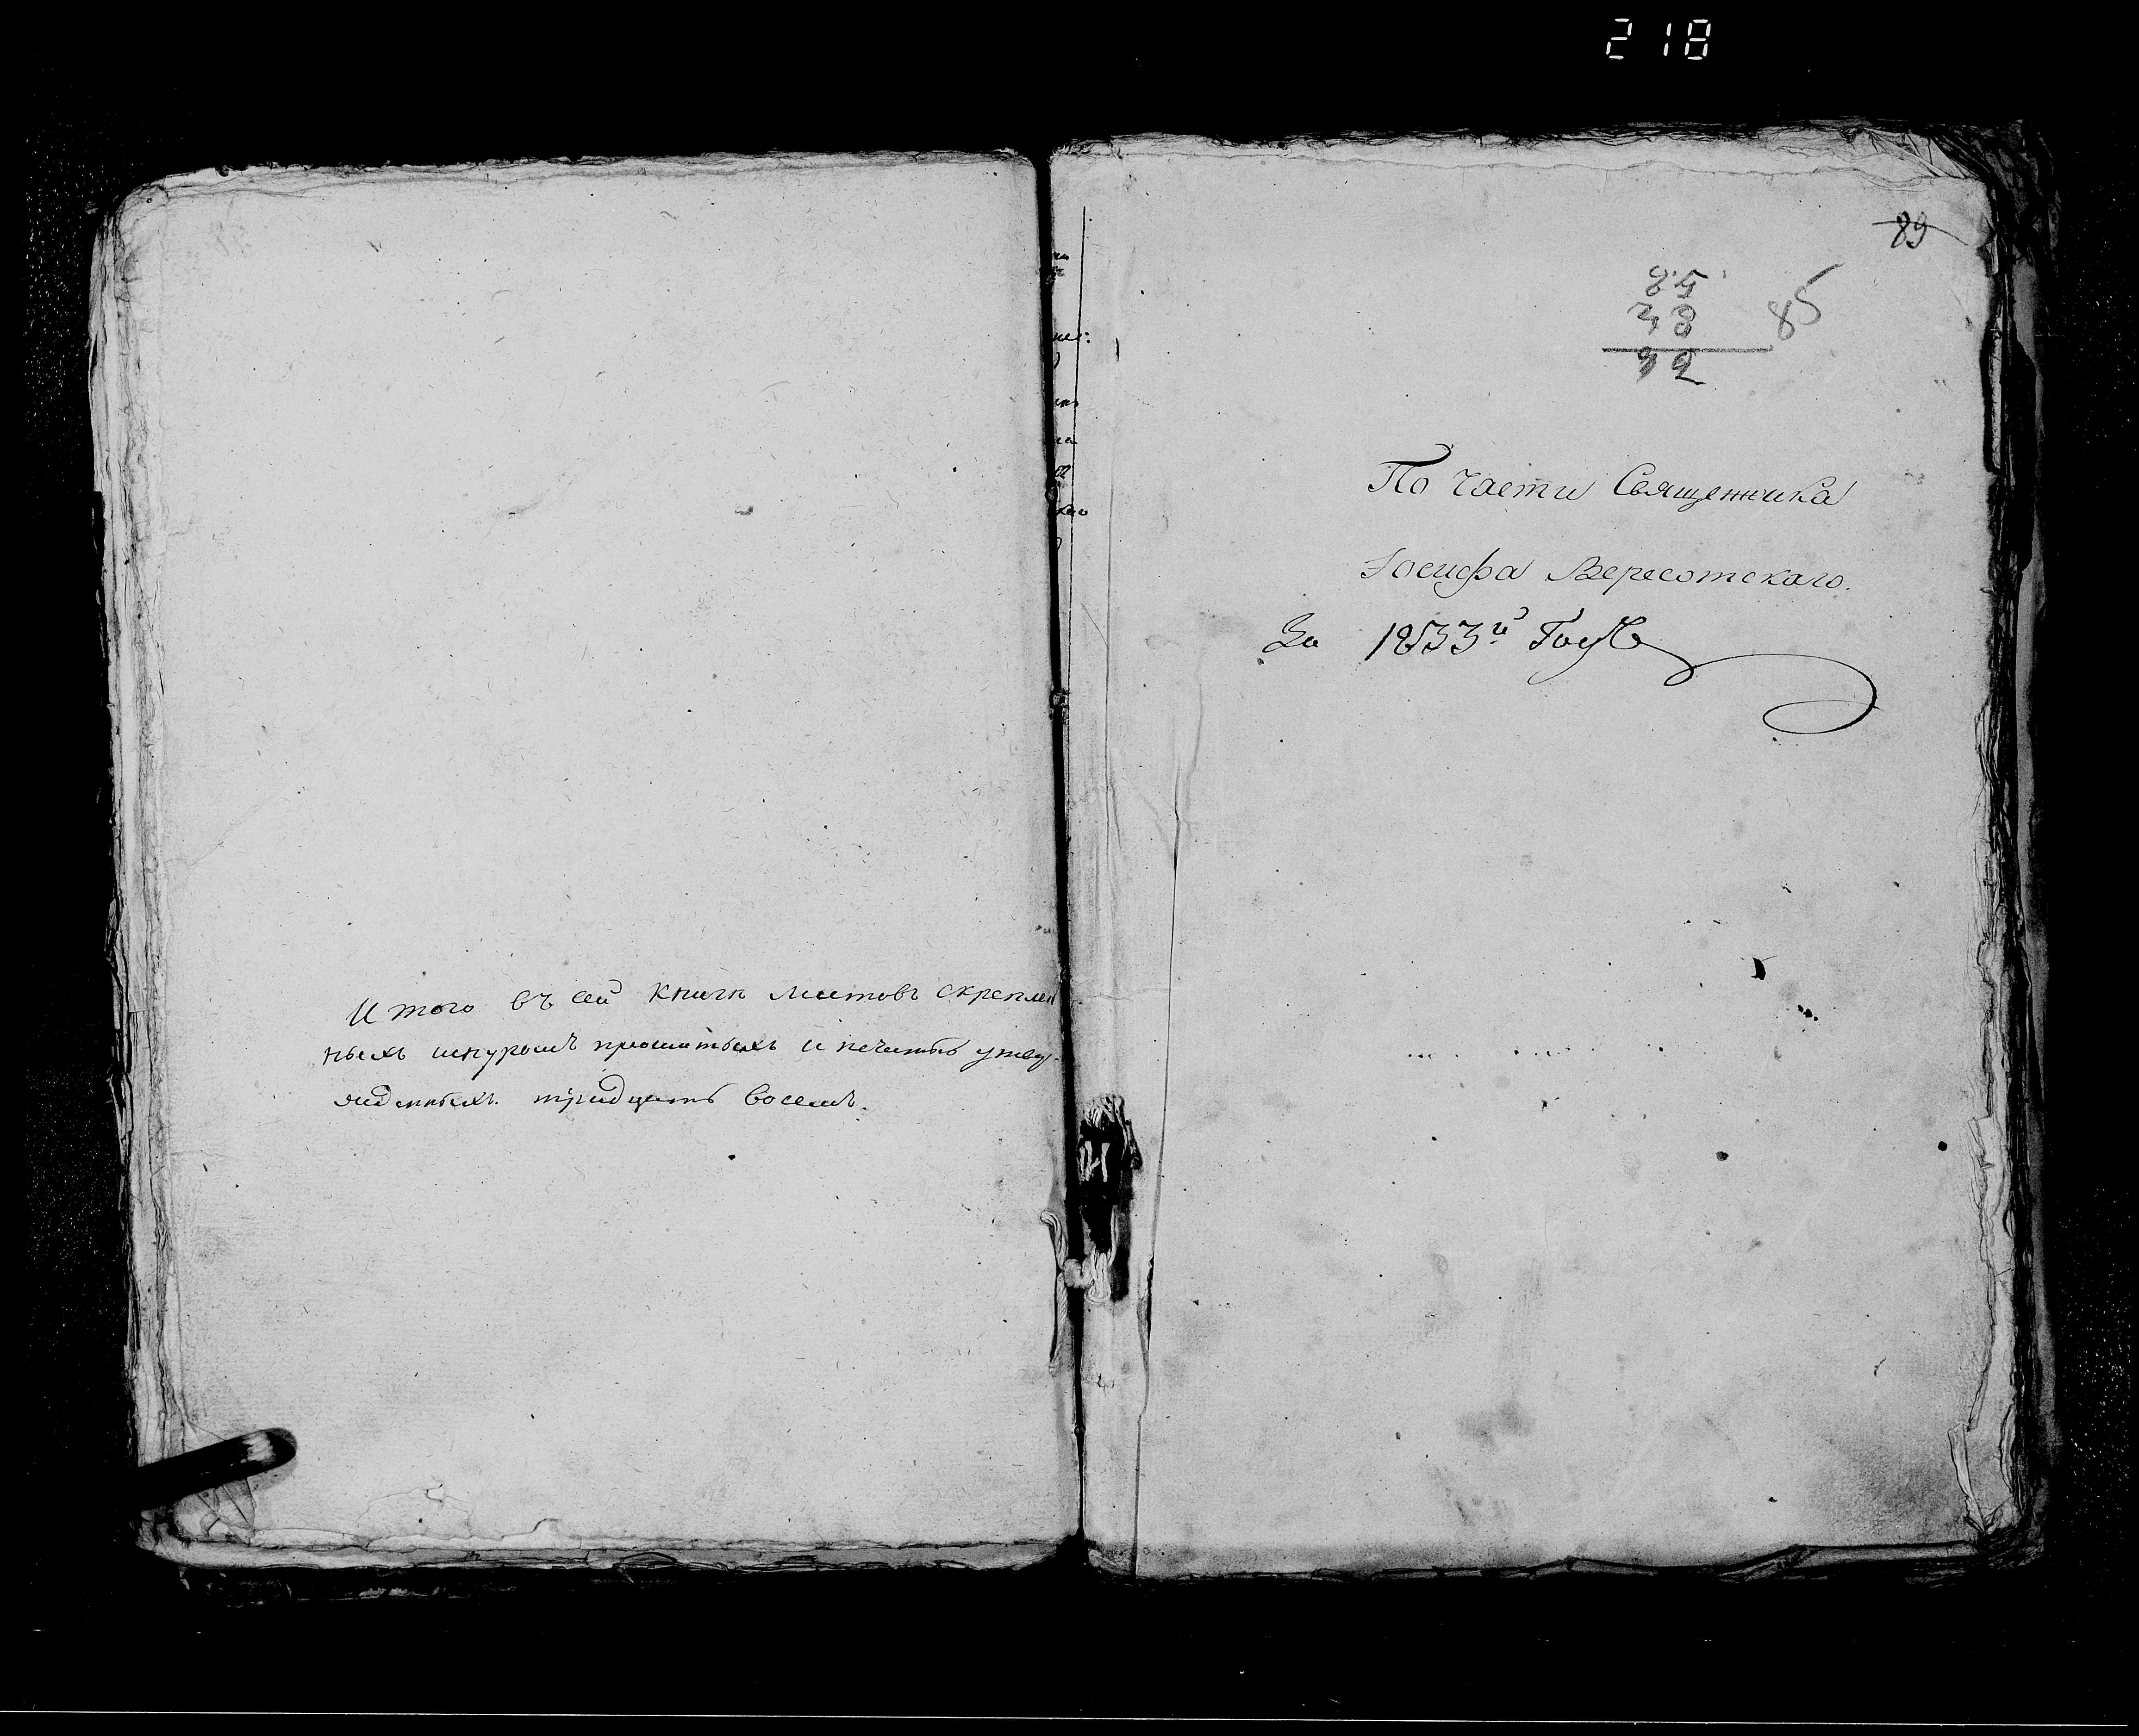 218
Итого въ сей книгѣ листовъ скреплен
ныхъ шнуромъ прошитыхъ и печатью утвер-
жденныхъ тридцать восемь.
89
85
38
92
85
По части Священника
Іосифа Вересотскаго.
За 1833й Годъ